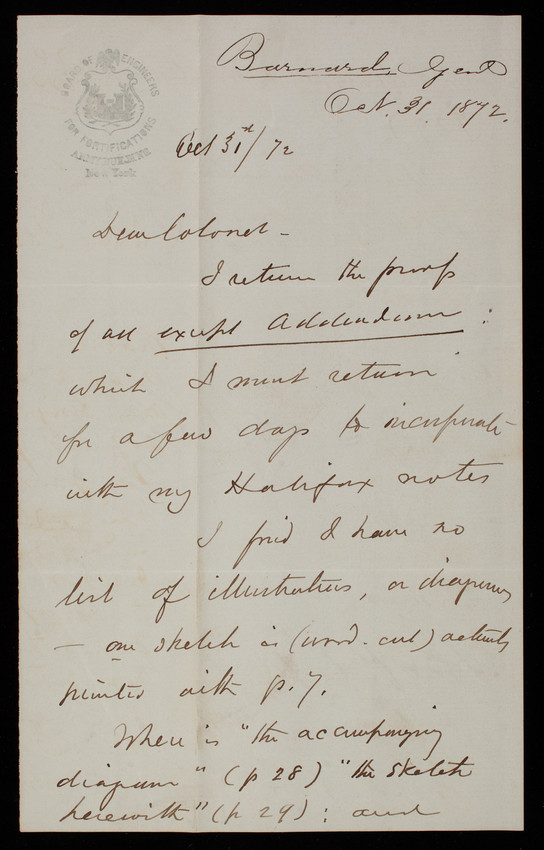 BOARD OF ENGINEERS
FOR FORTIFICATIONS
ARMY BUILDING
New York
Barnard, Genl
Oct. 31. 1872.
Oct 31st/72
Dear Colonel -
I return the proofs
of all except Addendum :
which I must retain
for a few days to incorporate
with my Halifax notes
I find I have no
list of illustrations, or diagrams
- one sketch is (wood-cut) actually
printed with p. 7.
Where is "the accompanying
diagram" (p 28) "the sketch
herewith" (p 29) : and